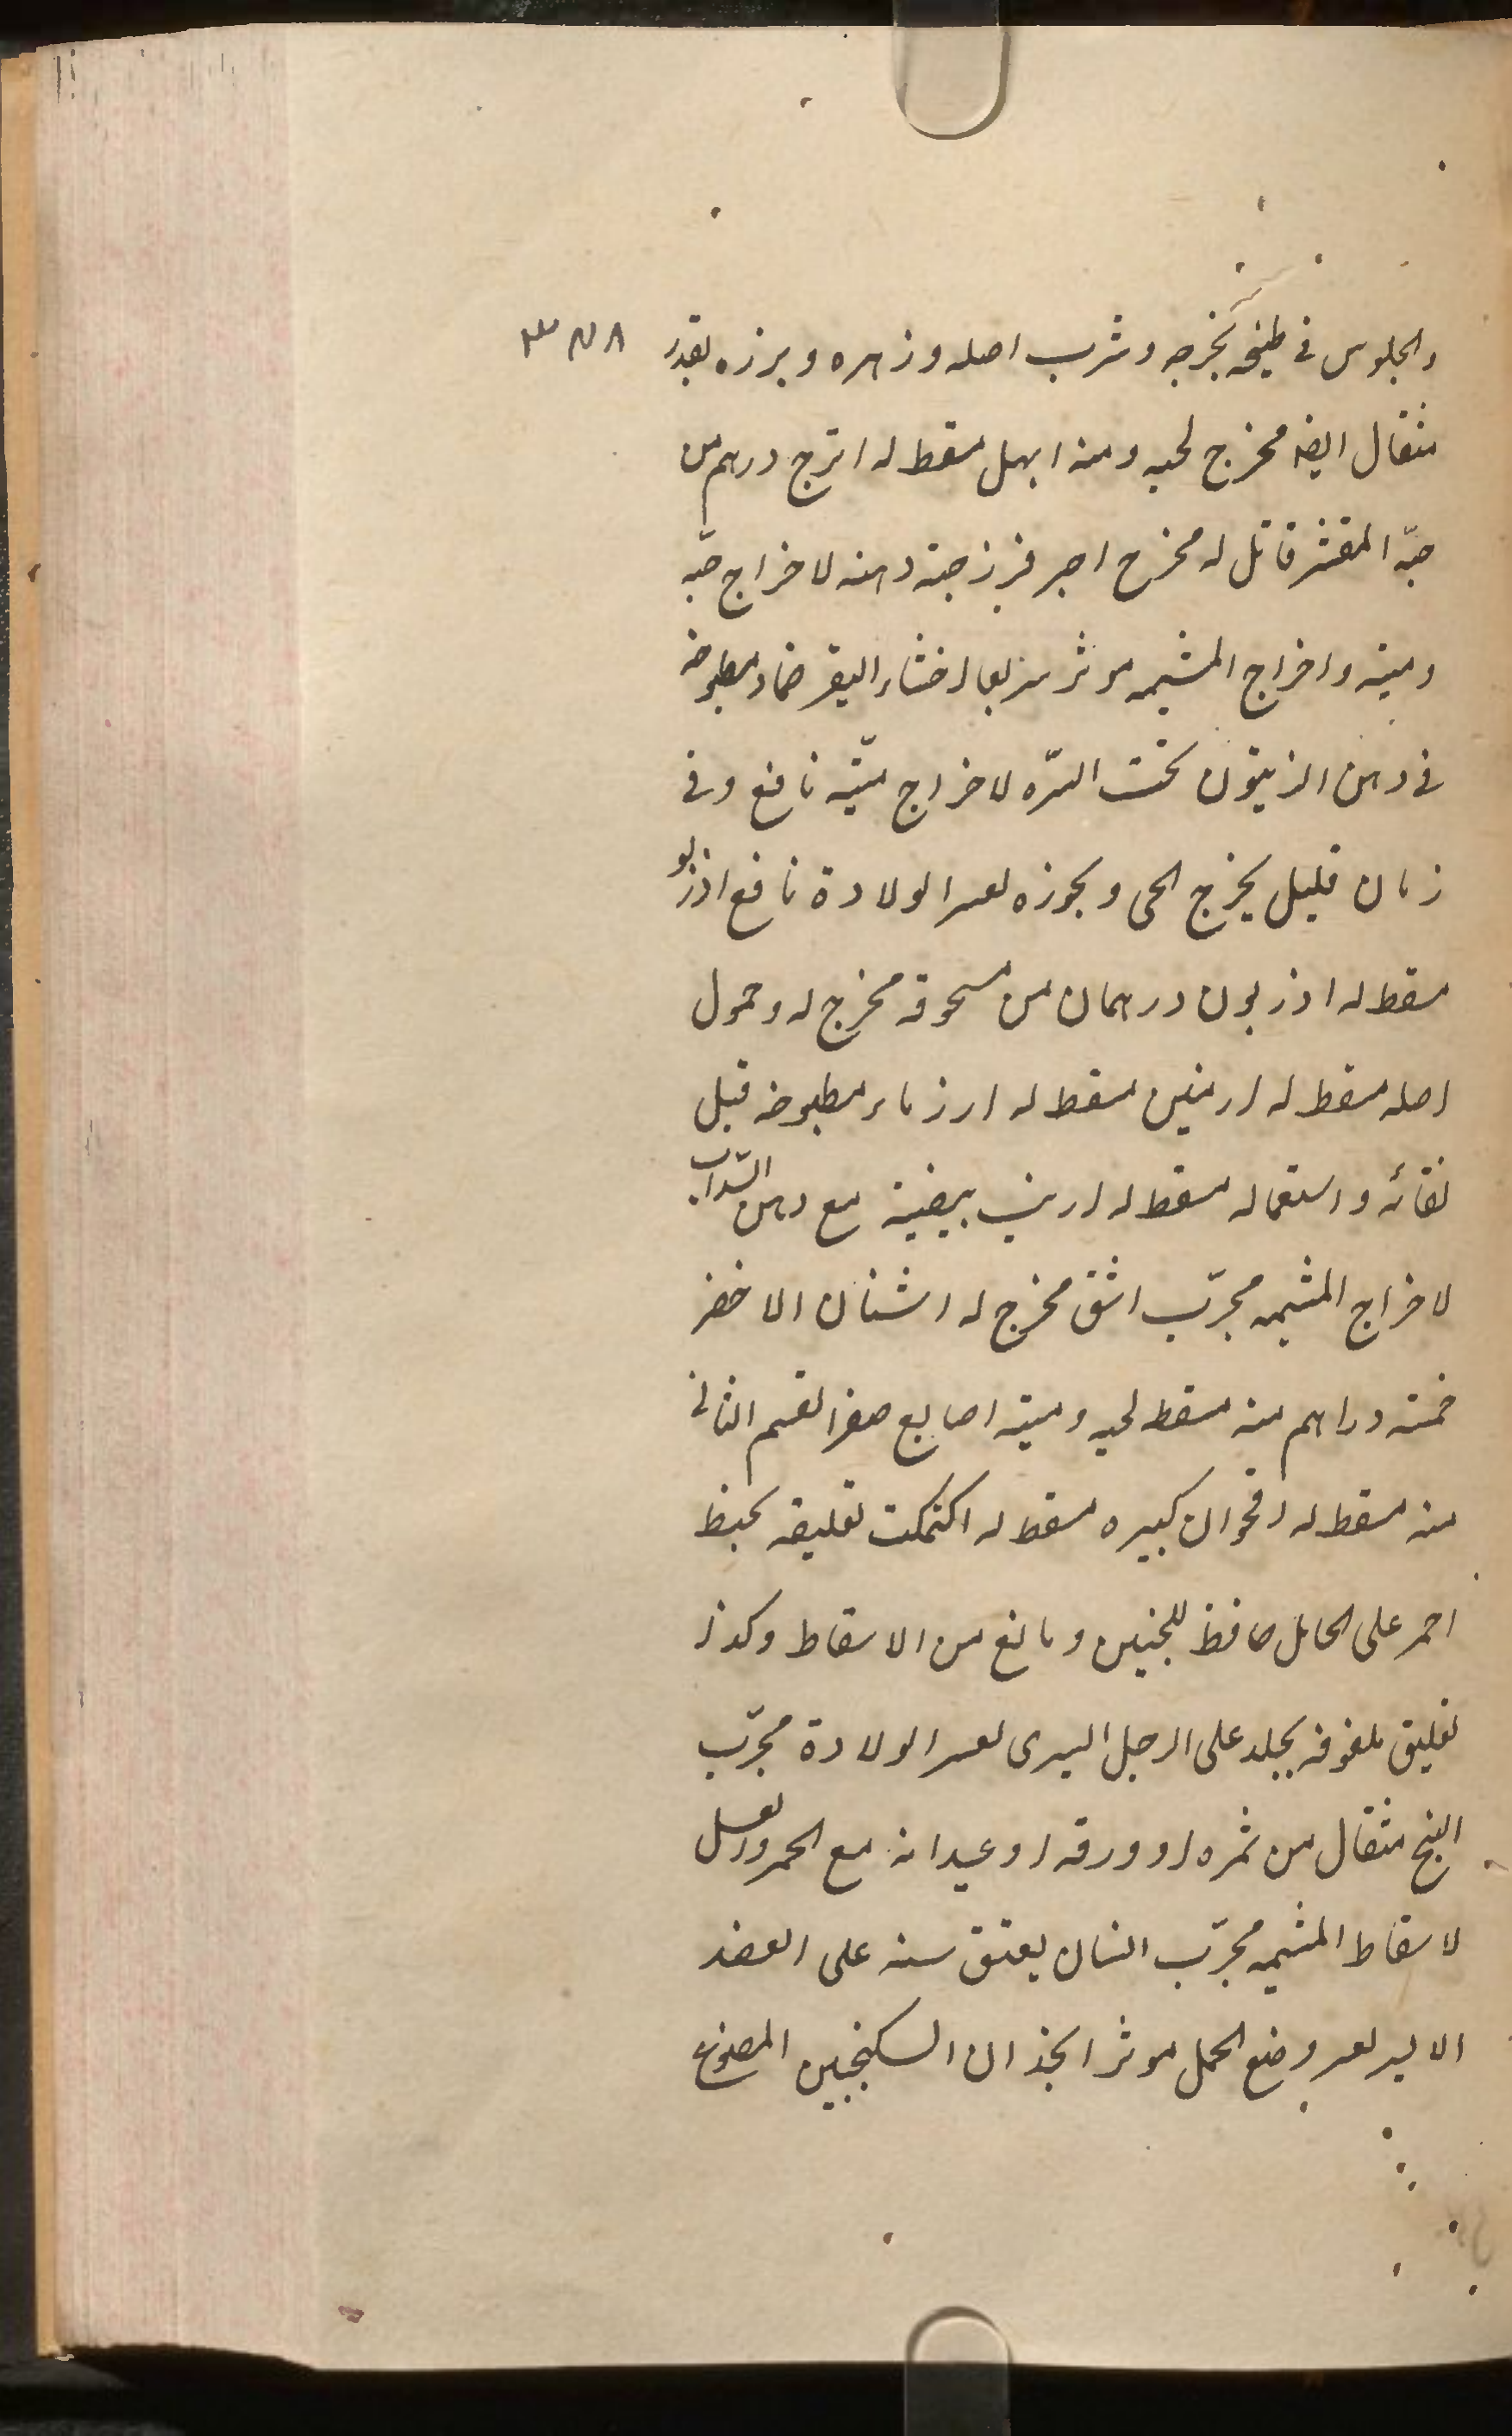 والجلوس فی طبیخه یخرجه وشرب اصله وزهره وبرزه بقدر
مثقال ایضه مخرج لحیه ومنه ابهل مسقط له اترج درهم من
حبّه المقشر قاتل له مخرج اجر فرزجته دهنه لاخراج حیّه
ومیته واخراج المشیمه موثر اخثاء البقر ضماد مطبوخه
فی دهن الزیتون تحت السرّه لاخراج میّته نافع وفی
زمان قلیل یخرج الحی وبخوره لعسر الولادة نافع اذربو
مسقط له اذربون درهمان من مسحوقه مخرج له وحمول
اصله مسقط له ارمنین مسقط له ارز ماء مطبوخه قبل
نقائه واستعماله مسقط له ارنب مع دهن السّداب
لاخراج المشیمه مجرّب اشق مخرج له اشنان الاخضر
خمسة دراهم منه مسقط لحیه ومیته اصابع صفر القسم الثانی
منه مسقط له اقحوان کبیره مسقط له اکتمکت تعلیقه بخیط
احمر علی الحامل حافظ للجنین ومانع من الاسقاط وکذا
تعلیق ملفوفه بجلد علی الرجل الیسری لعسر الولادة مجرّب
البنج مثقال من ثمره او ورقه او عیدانه مع الخمر والعسل
لاسقاط المشیمه مجرّب انسان یعتق سنه علی العضد
الایسر لعسر وضع الحمل موثر انجذان السکنجبین المصنوع